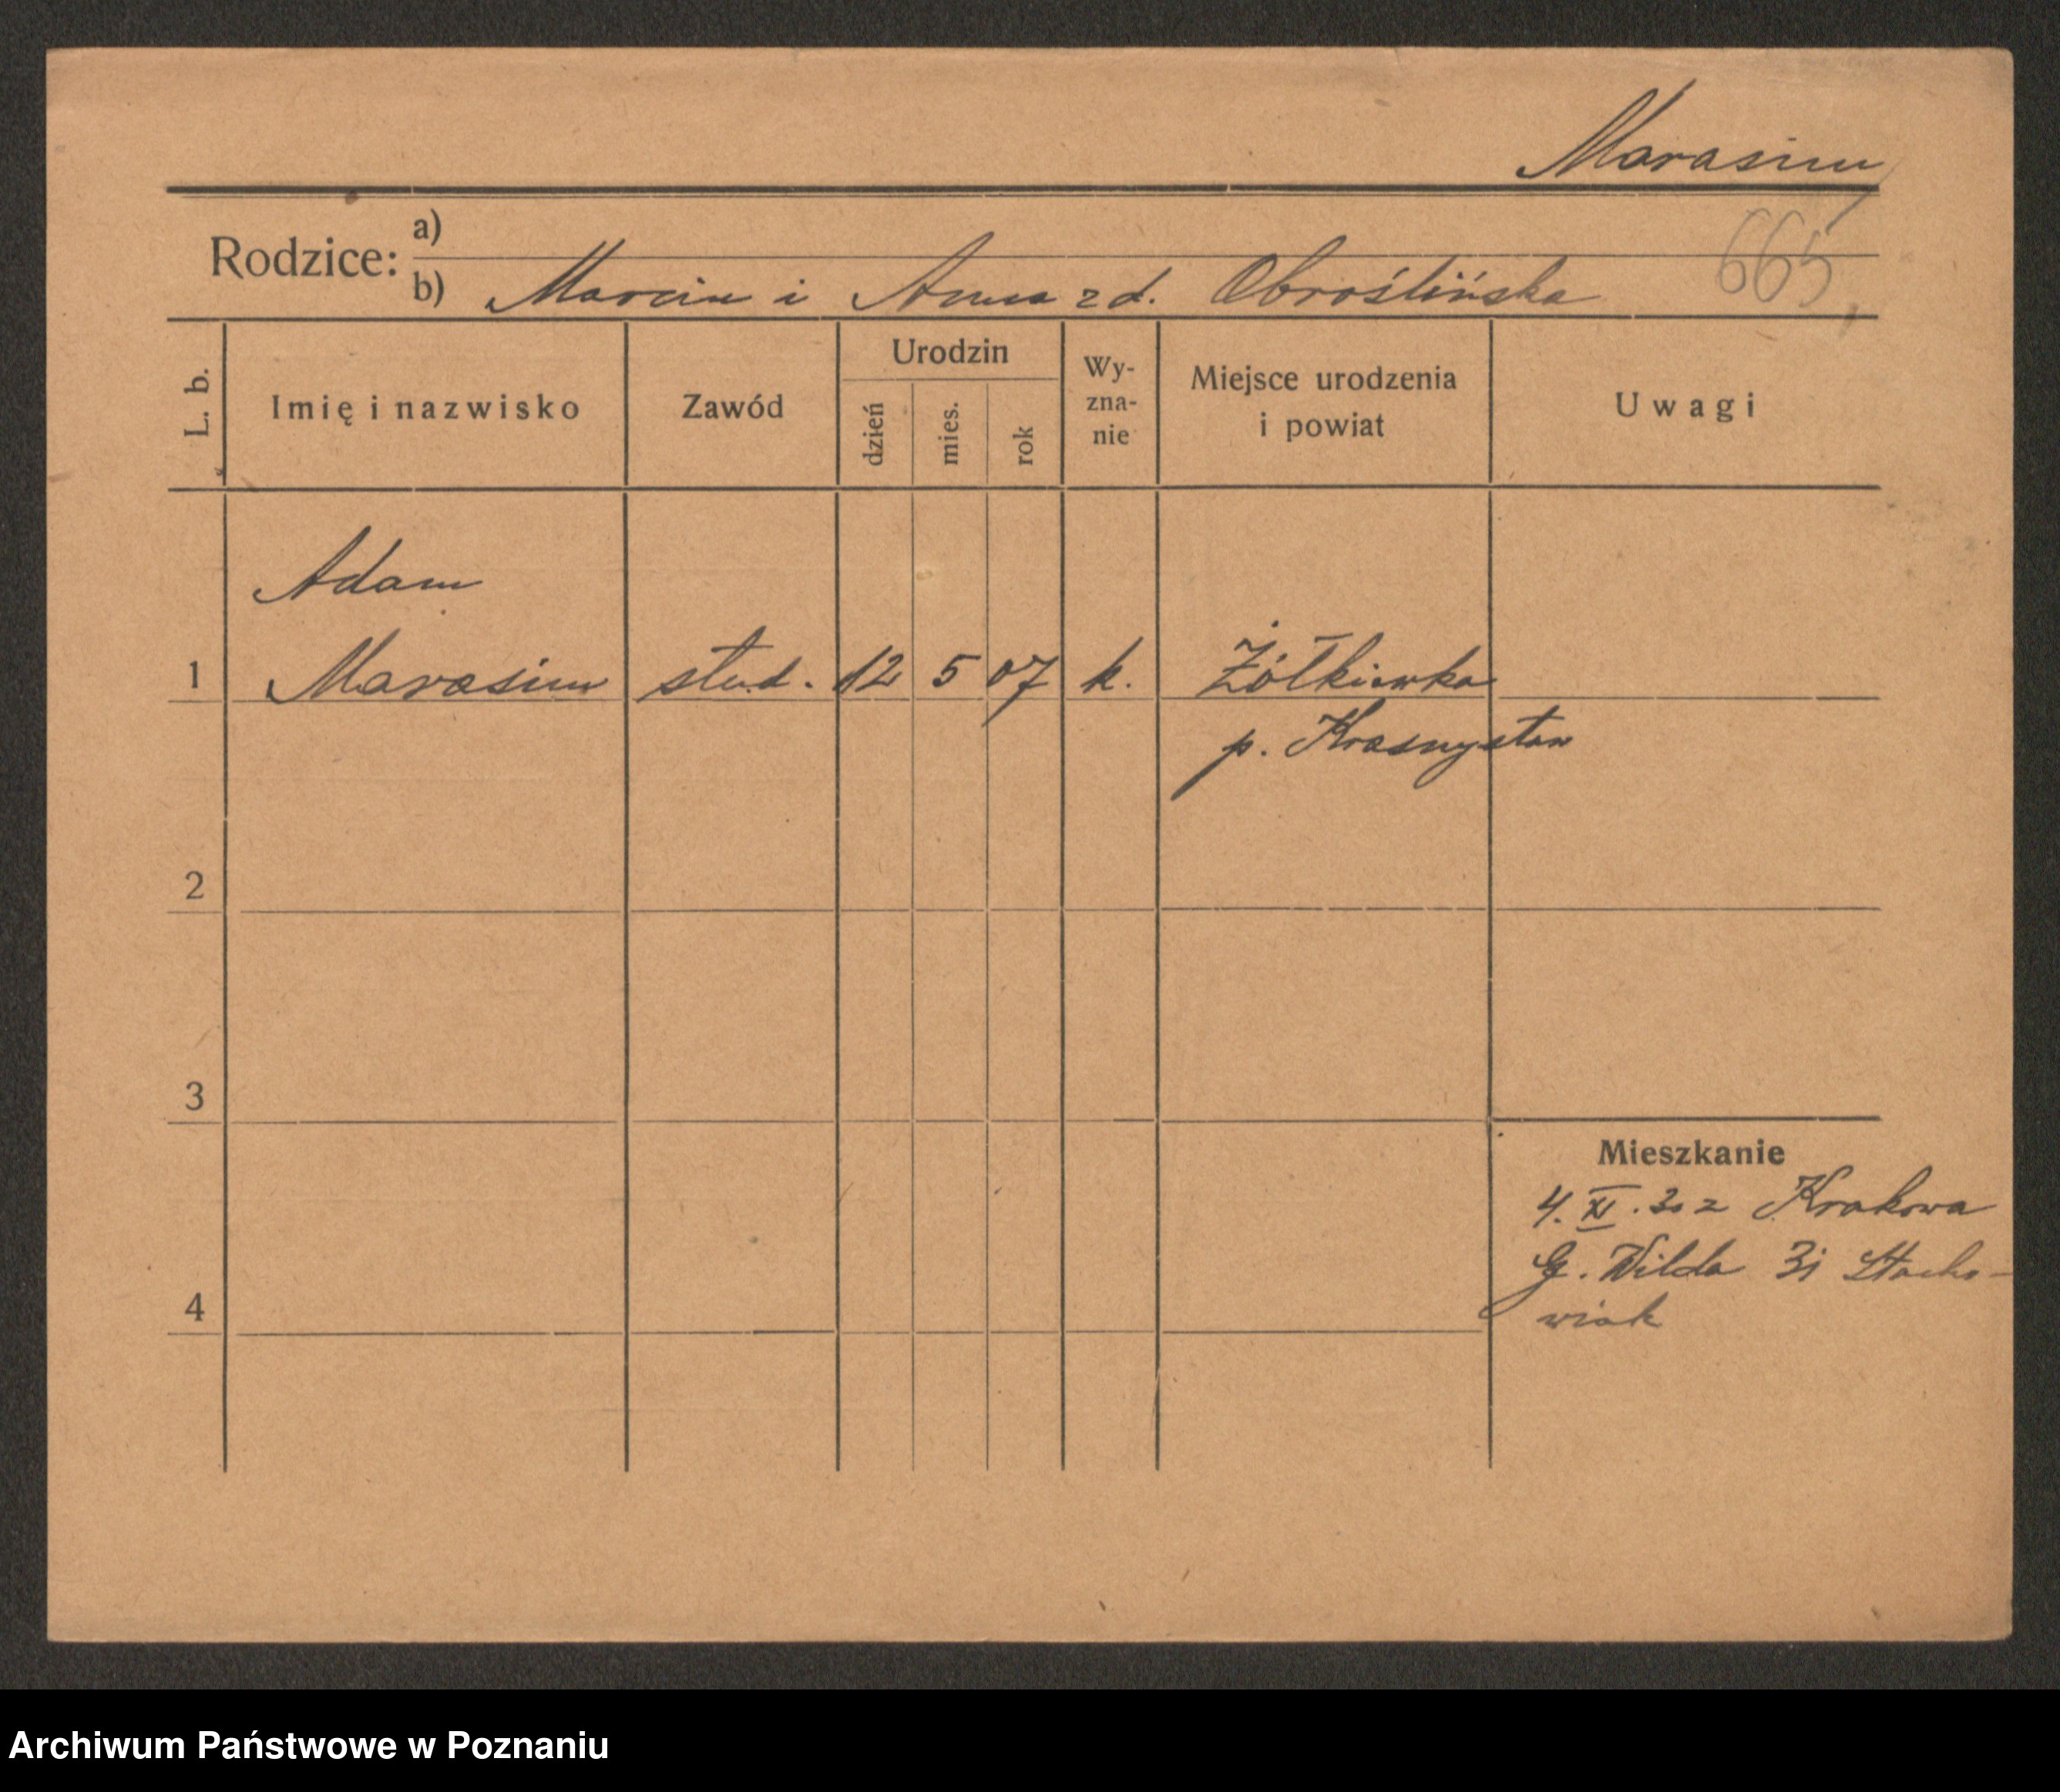 Marasim
665
Rodzice: a)
b) Marcin i Anna z d. Obroślińska
L. b.
Imię i nazwisko
Zawód
Urodzin
dzień
mies.
rok
Wy-
zna-
nie
Miejsce urodzenia
i powiat
Uwagi
Adam
1 Marasim stud. 12 5 07 k. Żółkiewka
p. Krasnystaw
2
3
Mieszkanie
4. XI. 30 z Krakowa
G. Wilda 31 Stacho-
wiak
4
Archiwum Państwowe w Poznaniu